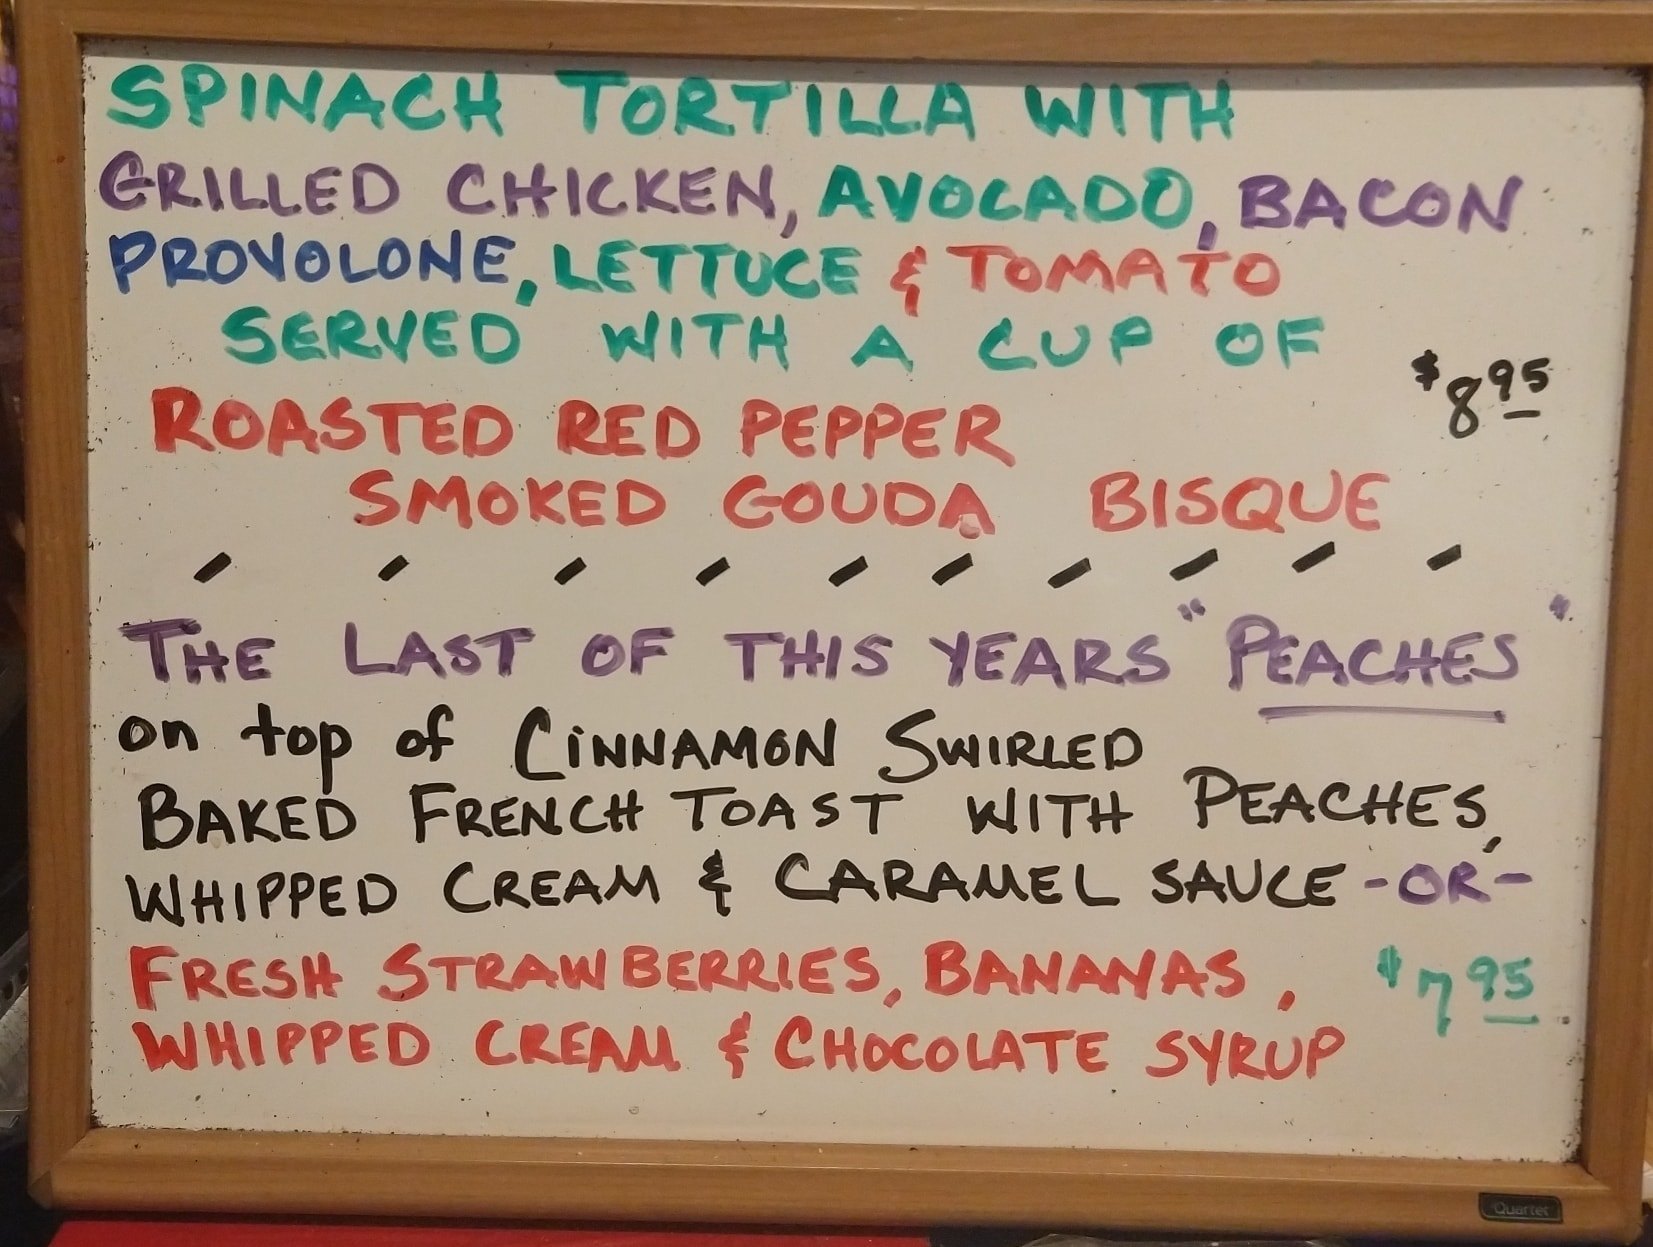 SPINACH TORTILLA WITH
GRILLED CHICKEN, AVOCADO, BACON
PROVOLONE, LETTUCE & TOMATO
SERVED WITH A CUP OF
$8 95
ROASTED RED PEPPER
SMOKED GOUDA BISQUE
THE LAST OF THIS YEARS "PEACHES"
on top of CINNAMON SWIRLED
BAKED FRENCH TOAST WITH PEACHES,
WHIPPED CREAM & CARAMEL SAUCE -OR-
FRESH STRAWBERRIES, BANANAS, $7 95
WHIPPED CREAM & CHOCOLATE SYRUP
Quartet